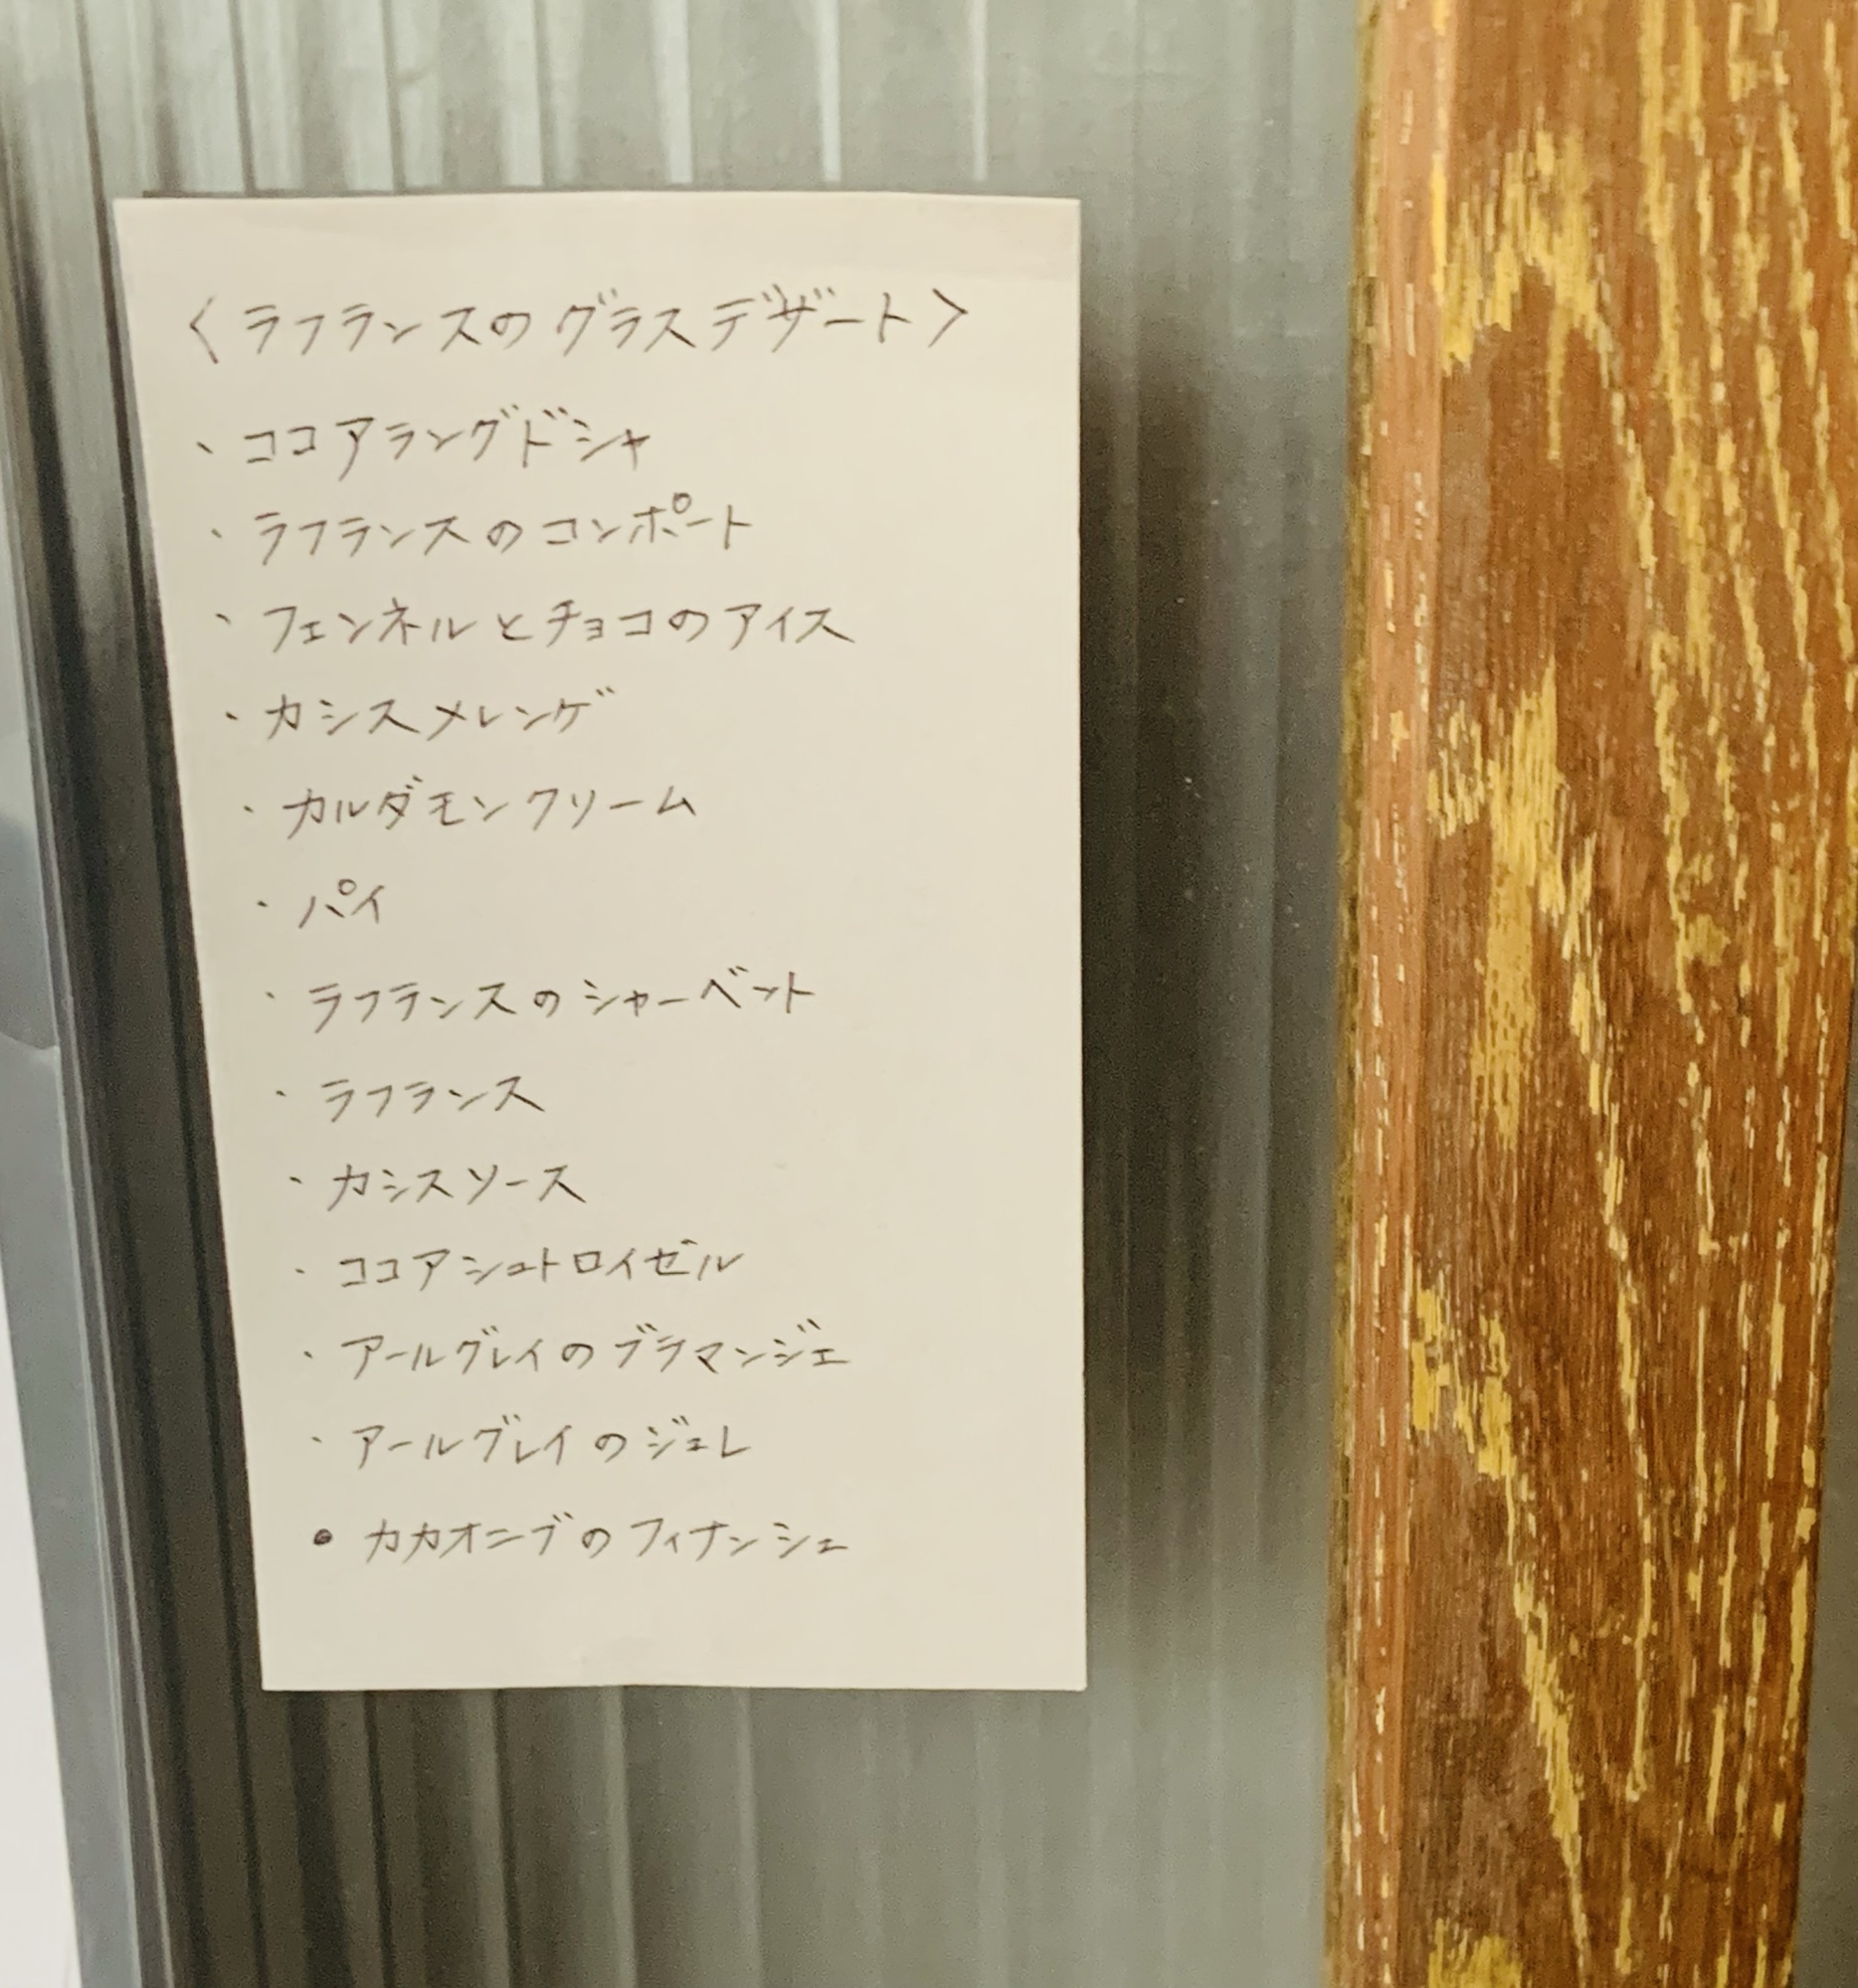 〈ラフランスのグラスデザート〉
・ココアラングドシャ
・ラフランスのコンポート
・フェンネルとチョコのアイス
・カシスメレンゲ
・カルダモンクリーム
・パイ
・ラフランスのシャーベット
・ラフランス
・カシスソース
・ココアシュトロイゼル
・アールグレイのブラマンジェ
・アールグレイのジェレ
・カカオニブのフィナンシェ